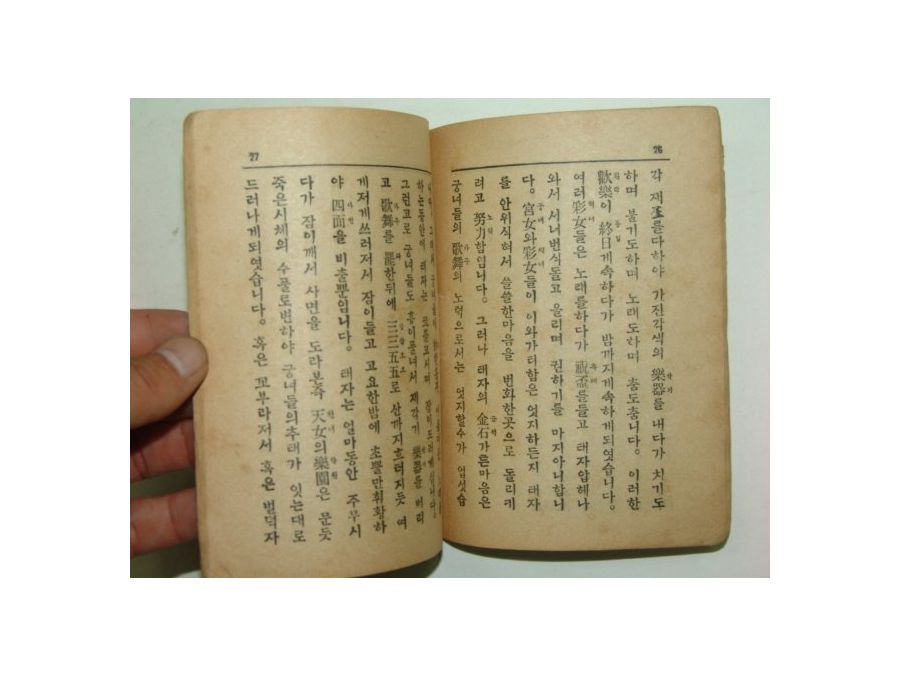 26
각 재조를다하야 가전각색의 樂器를 내다가 치기도
하며 불기도하며 노래도하며 춤도춤니다。 이러한
歡樂이 終日게속하다가 밤까지게속하게되엿습니다。
여러彩女들은 노래를하다가 祝盃를들고 태자압헤나
와서 서너번식돌고 올리며 권하기를 마지아니합니
다。 宮女와彩女들이 이와가티함은 엇지하든지 태자
를 안위식혀서 쓸쓸한마음을 번화한곳으로 돌리키
려고 努力함임니다。 그러나 태자의 金石가튼마음은
궁녀들의 歌舞의 노력으로서는 엇지할수가 업섯습
27
하는동안에 태자는
그런고로 궁녀들도 흥이풀녀서 제각기 樂器를 버리
고 歌舞를 罷한뒤에 三三五五로 산까지흐터지듯 여
게저게 쓰러저서 잠이들고 고요한밤에 초뿔만휘황하
야 四面을 비출뿐입니다。 태자는 얼마동안 주무시
다가 잠이깨서 사면을 도라본즉 天女의樂園은 문듯
죽은시체의 수풀로변하야 궁녀들의추태가 잇는대로
드러나게되엿습니다。 혹은 꼬부라저서 혹은 벌덕자